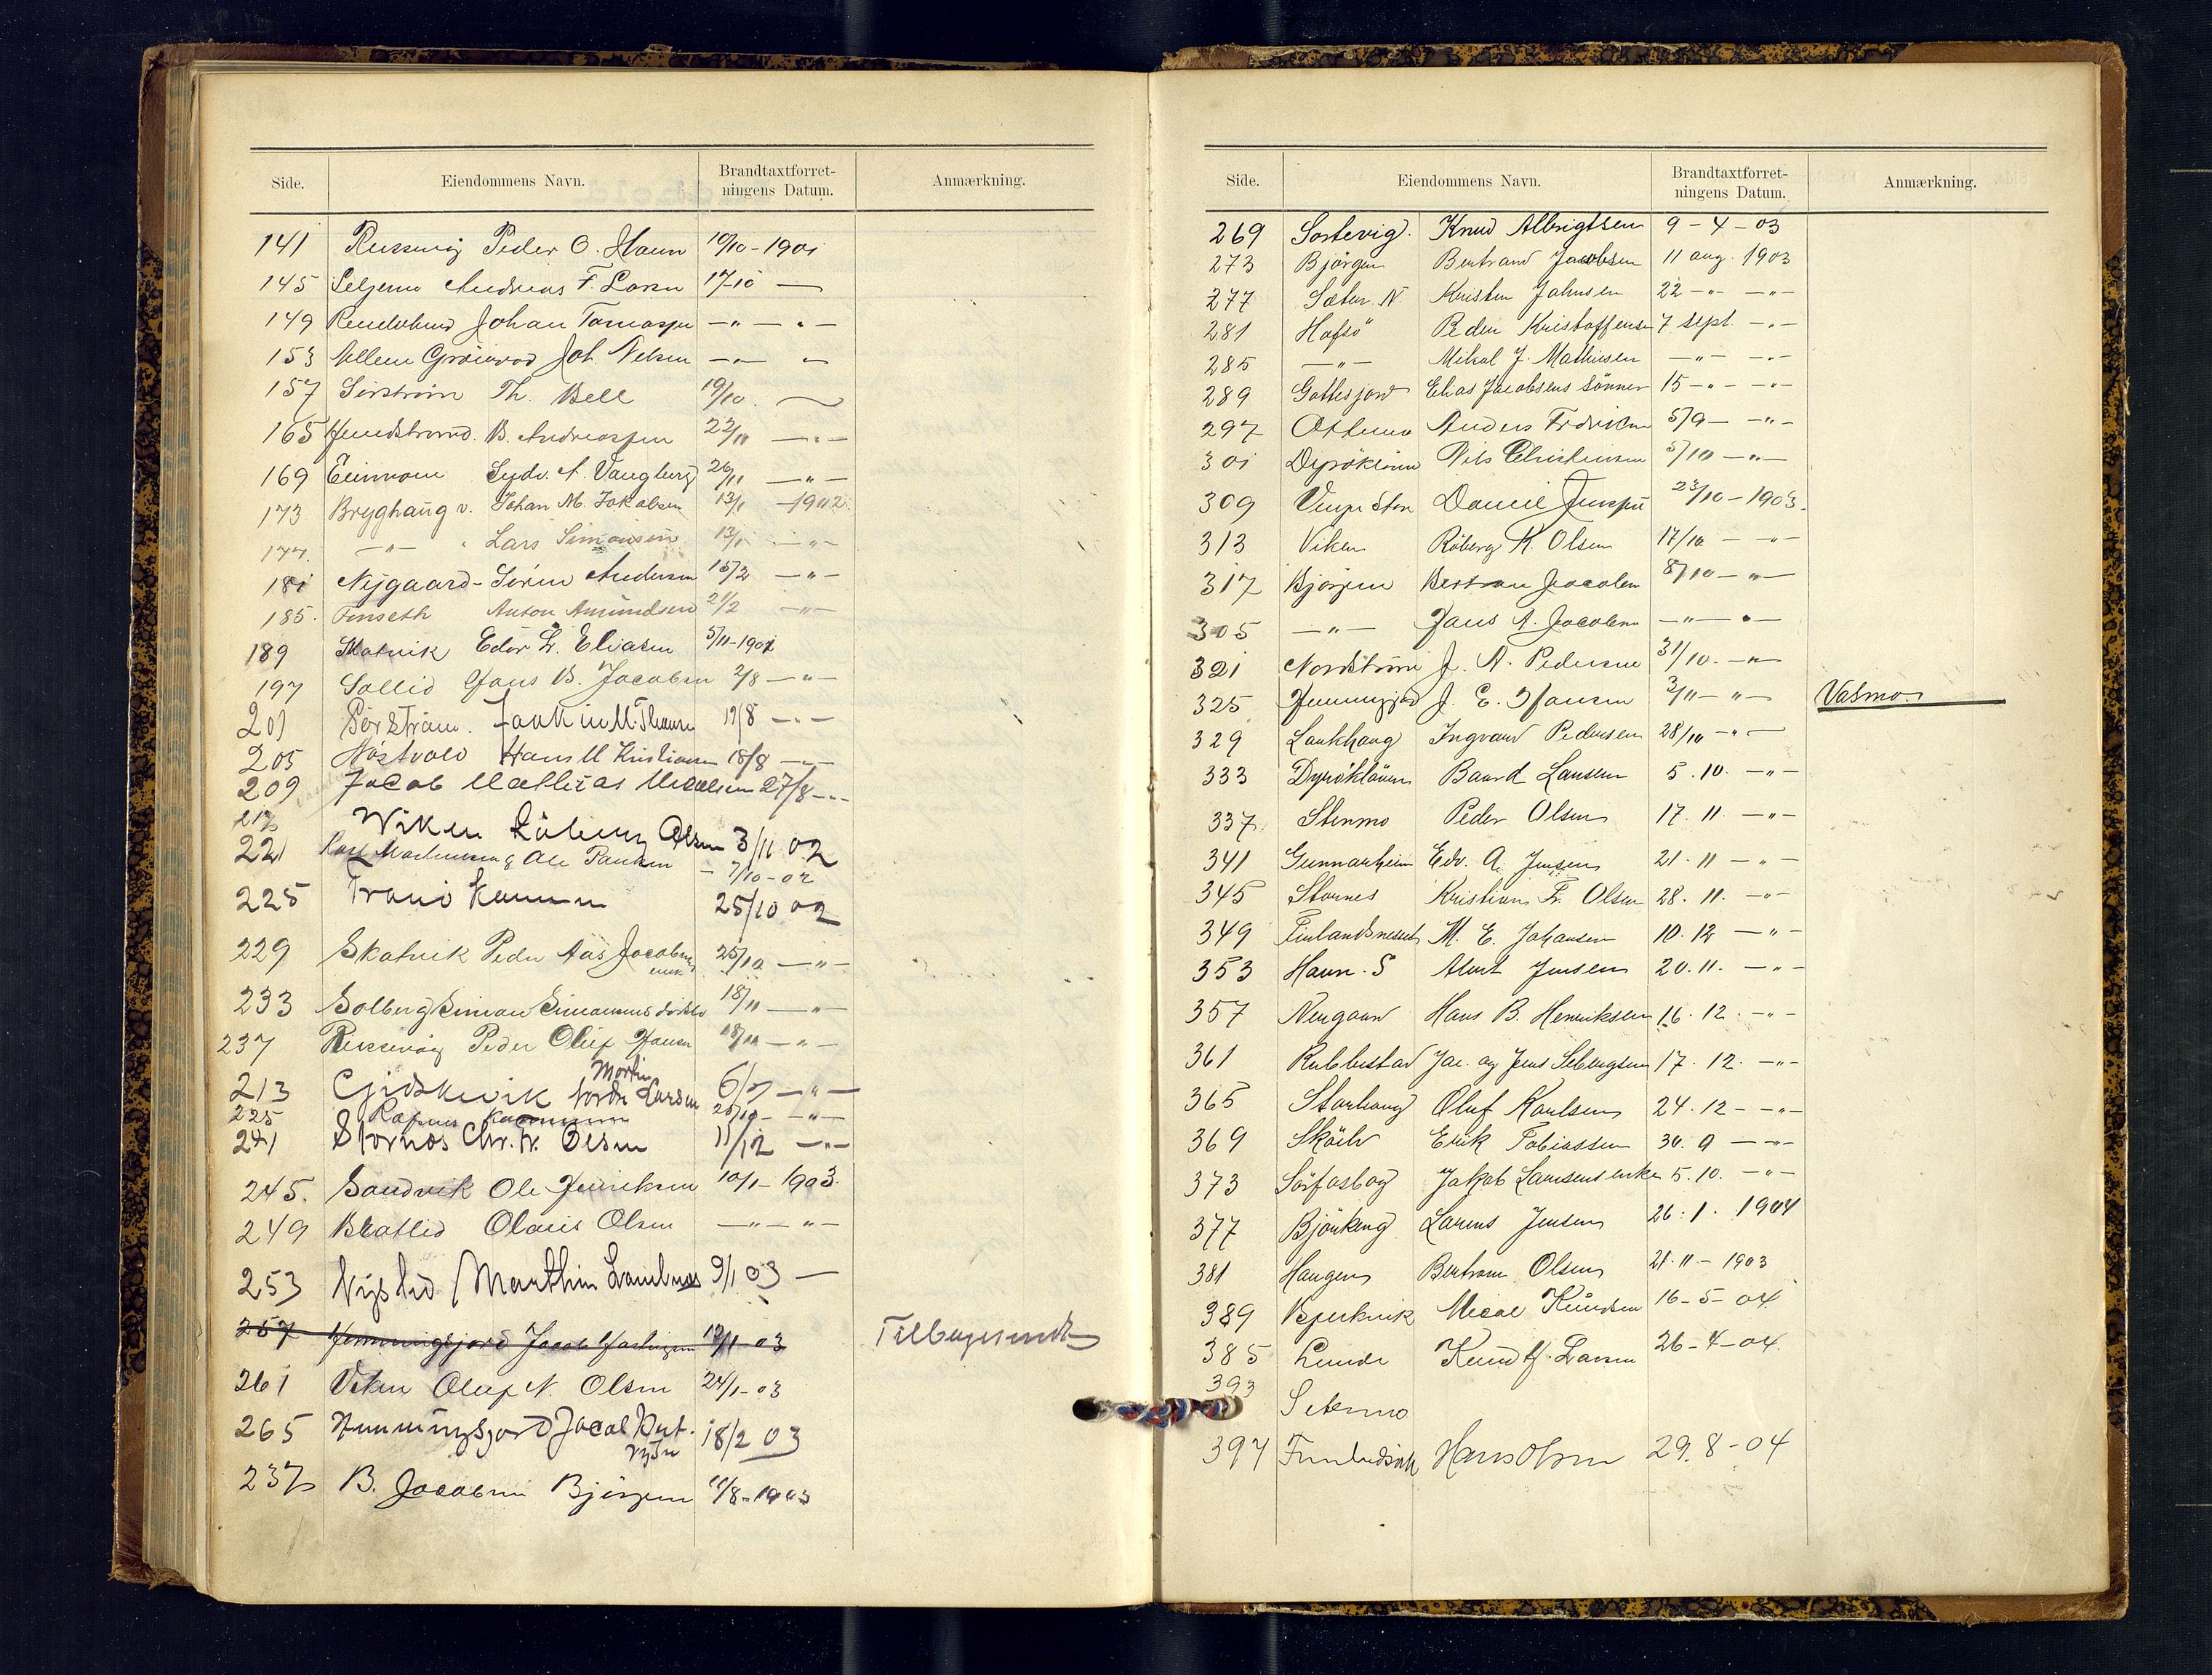 Side. Eiendommens Navn. Brandtaxtforret-ningens Datum. Anmærkning.
141 Russevåg Peder O. Haun 10/10-1901
145 Seljemo Andreas F. Larsn 17-10 —
149 Johan Tomassen —"— " —
153 Joh. Nelsen —"— "—
157 Sørstrøm Th. Bell 19/10
165 B. Andreassen 22/11 —"—
169 Einmoen Sydv. A. Vangberg 26/11 —"—
173 Bryghaug v. Johan M. Jakobsen 13/1 -1902.
177. —"— " Lars Simonsen 13/1 —"—
181 Nygaard- Sören Andersen 15/2 —"—
185. Finseth Anton Amundsen 21/2 —"—
189 Skatvik Edor L. Eliasen 5/11-1901
197 Sollid Hans B. Jacobsen 2/8 —"—
201 Sørstrøm. Joakim M. Thomsen 19/8 —"—
205 Nöstvold Hans M Kristiansen 18/8 —"—
209 Jacob Mathias Mikalsen 27/8 —"—
217 Wiken Røberg Olsen 3/11 02
221 Karl Martinussen & Ole Paulsen 7/10-02
225 Tranö Kommun 25/10 02
229 Skatvik Peder Aas Jacobsens enke 25/10 —"—
233 Solberg Simon Simonsens 18/11 —"—
237 Russevåg Peder Oluf Hansen 18/11 —"—
213 Gjiskevik nordre Morten Larsen 6/7 —"—
225 Kommun 25/10- —"—
241 Stornes Chr. Fr. Olsen 11/12 —"—
245. Sandvik Ole Henriksen 10/1-1903.
249 Bratlid Olaus Olsen —"— "—
253 Nylid Marthin Lambertsen 9/1 03 —
257 Hemmingsjord Jacob 12/1-03
261 Viken Oluf N. Olsen 24/1-03
265 Hemmingsjord Jacob 18/2 03
237 B. Jacobsen Bjørgen 11/8-1903
Side. Eiendommens Navn. Brandtaxtforret-ningens Datum. Anmærkning.
269 Sortevig. Knud Albrigtsen 9-4-03
273 Björgen Bertrand Jacobsen 11 aug. 1903
277 Sæter. N. Kristen Johnsen 22 —"— —"—
281 Hofsö Peder Kristoffersen 7 sept. —"—
285 —"— Mikal J. Mathisen —"— —"—
289 Gottesjord Elias Jacobsens Sönner 15 —"— —"—
297 Anders Fredriksen 5/9 — —"—
301 Dyröklöven Nils Christensen 5/10 —"—
309 Daniel Jenssen 23/10-1903.
313 Viken Röberg K. Olsen 17/10 — —"—
317 Bjørgen Bertran Jacobsen 8/10 —"—
305 —"— Hans A. Jacobsen —"— " —
321 Nordström J. A. Pedersen 31/10. —"—
325 Hemmingsjord J. E. Hansen 3/11 — "— Vasmo.
329 Laukhaug Ingvard Pedersen 28/10 —"—
333 Dyröklöven Baard Lansen 5. 10. —"—
337. Stenmo Peder Olsen 17. 11. —"—
341 Gunnarheim Edv. A. Jensen 21. 11 — "—
345 Stornes Kristian Fr. Olsen 28. 11. —"—
349 Finlandsneset M. E. Johansen 10. 12 —"—
353 Havn. S Albert Jensen 20. 11. —"—
357 Neugaard Hans B. Henriksen 16. 12. —"—
361 Rubbestad Jac. og Jens 17. 12. —"—
365 Storhaug Oluf Karlsen 24. 12 - —"—
369 Skälv Erik Tobiassen 30. 9 — —"—
373 Sörfasbog Jakob Larsens enke 5. 10. —"—
377 Björkeng Larens Jensen 26. 1. 1904
381 Haugen Bertram Olsen 21. 11 - 1903
389 Micae Knudsen 16-5-04
385 Lunde Knud H. Larsen 26-4-04.
393 Setermo
397 Hans Olsen 29. 8-04